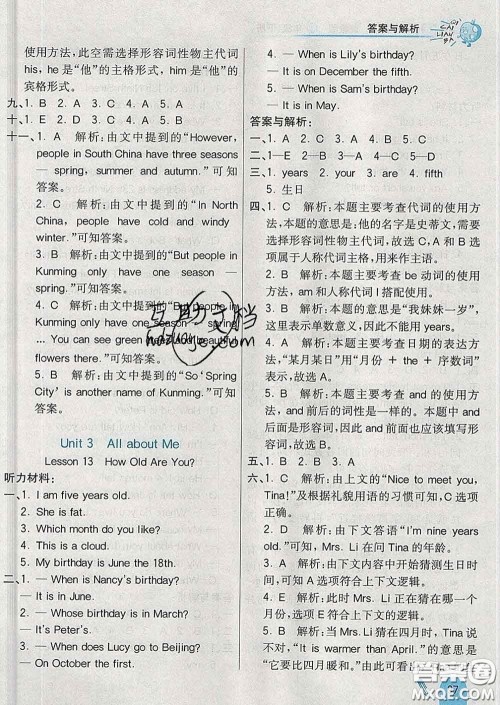 答案与解析
使用方法，此空需选择形容词性物主代词
his，he 是“他”的主格形式，him 是“他”的
宾格形式。
九、1. B 2. A 3. C 4. A 5. C
十一、1. A 解析：由文中提到的“However,
people in South China have three seasons
— spring, summer and autumn.”可知
答案。
2. C 解析：由文中提到的“In North
China, people have cold and windy
winter.”可知答案。
3. B 解析：由文中提到的“But people in
Kunming only have one season —
spring.”可知答案。
4. C 解析：由文中提到的“But people in
Kunming only have one season — spring
... You can see green trees and beautiful
flowers there.”可知答案。
5. B 解析：由文中提到的“So ‘Spring
City’ is also another name of Kunming.”
可知答案。
Unit 3 All about Me
Lesson 13 How Old Are You?
听力材料：
一、1. I am five years old.
2. She is fat.
3. Which month do you like?
4. This is a cloud.
5. My birthday is June the 18th.
二、1. — When is Nancy's birthday?
— It is in June.
2. — Whose birthday is in March?
— It's Peter's.
3. — When does Lucy go to Beijing?
— On October the first.
4. — When is Lily's birthday?
— It is on December the fifth.
5. — When is Sam's birthday?
— It is in May.
答案与解析：
一、1. C 2. A 3. B 4. B 5. C
二、1—E 2—D 3—C 4—B 5—A
三、1. years 2. your 3. are 4. fifth
5. 生日
四、1. C 解析：本题主要考查代词的使用方
法，本题的意思是：他的名字是史蒂文，需
要选择形容词性物主代词，故选 C，A 和 B 选
项属于人称代词，用来作主语。
2. B 解析：本题主要考查 be 动词的使用方
法，am 和人称代词 I 搭配使用。
3. B 解析：本题的意思是“我妹妹一岁”，这
里表示单数意义，因此不能用 years。
4. B 解析：本题主要考查日期的表达方
法，“某月某日”用“月份 + the + 序数词”
表示。故选 A。
5. A 解析：本题主要考查 and 的使用方
法，and 是并列连词，它所连接的前后内容
的词性是一样的，因为 and 前面的 big 是
形容词，因此 and 后面也应该填写形容
词，故选 A。
五、1. B 2. B 3. A
六、1. C 解析：由上文“Nice to meet you,
Tina!”及根据礼貌用语的习惯可知，C 选项
符合上下文逻辑。
2. D 解析：由下文答语“I'm nine years
old.”可知，Mrs. Li 在问 Tina 的年龄。
3. A 解析：由下文内容中开始猜测生日日
期可知 A 选项符合上下文逻辑。
4. E 解析：由下文 Mrs. Li 在猜哪一个月
份，选项 E 符合上下文逻辑。
5. B 解析：当 Mrs. Li 猜在四月时，Tina
很快说不是，由下文“是在五月吗”的意思
是“它要比四月暖和”。由此可看出
互助文档
hazuoye.com
答案圈
MXQE.COM